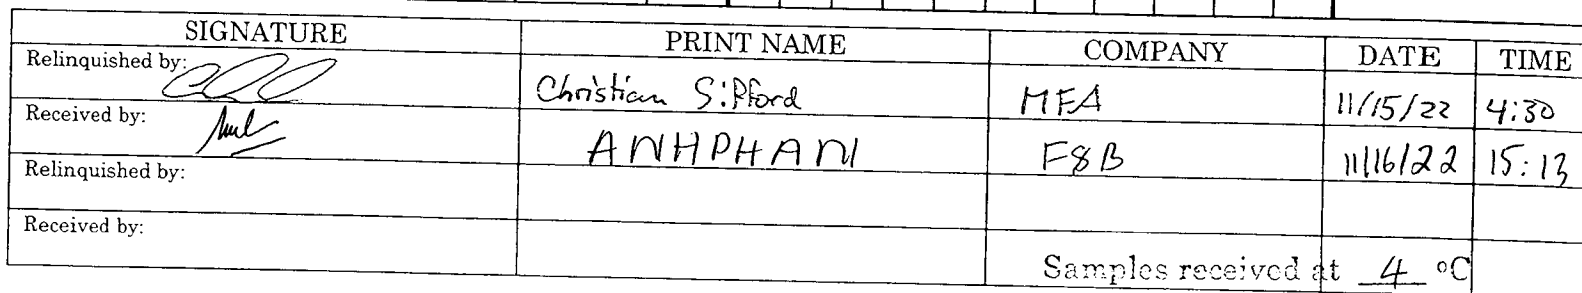 SIGNATURE PRINT NAME COMPANY DATE TIME
Relinquished by: Christian Sifford MFA 11/15/22 4:30
Received by: ANHPHAN F&B 11/16/22 15:13
Relinquished by:
Received by:
Samples received at 4 °C